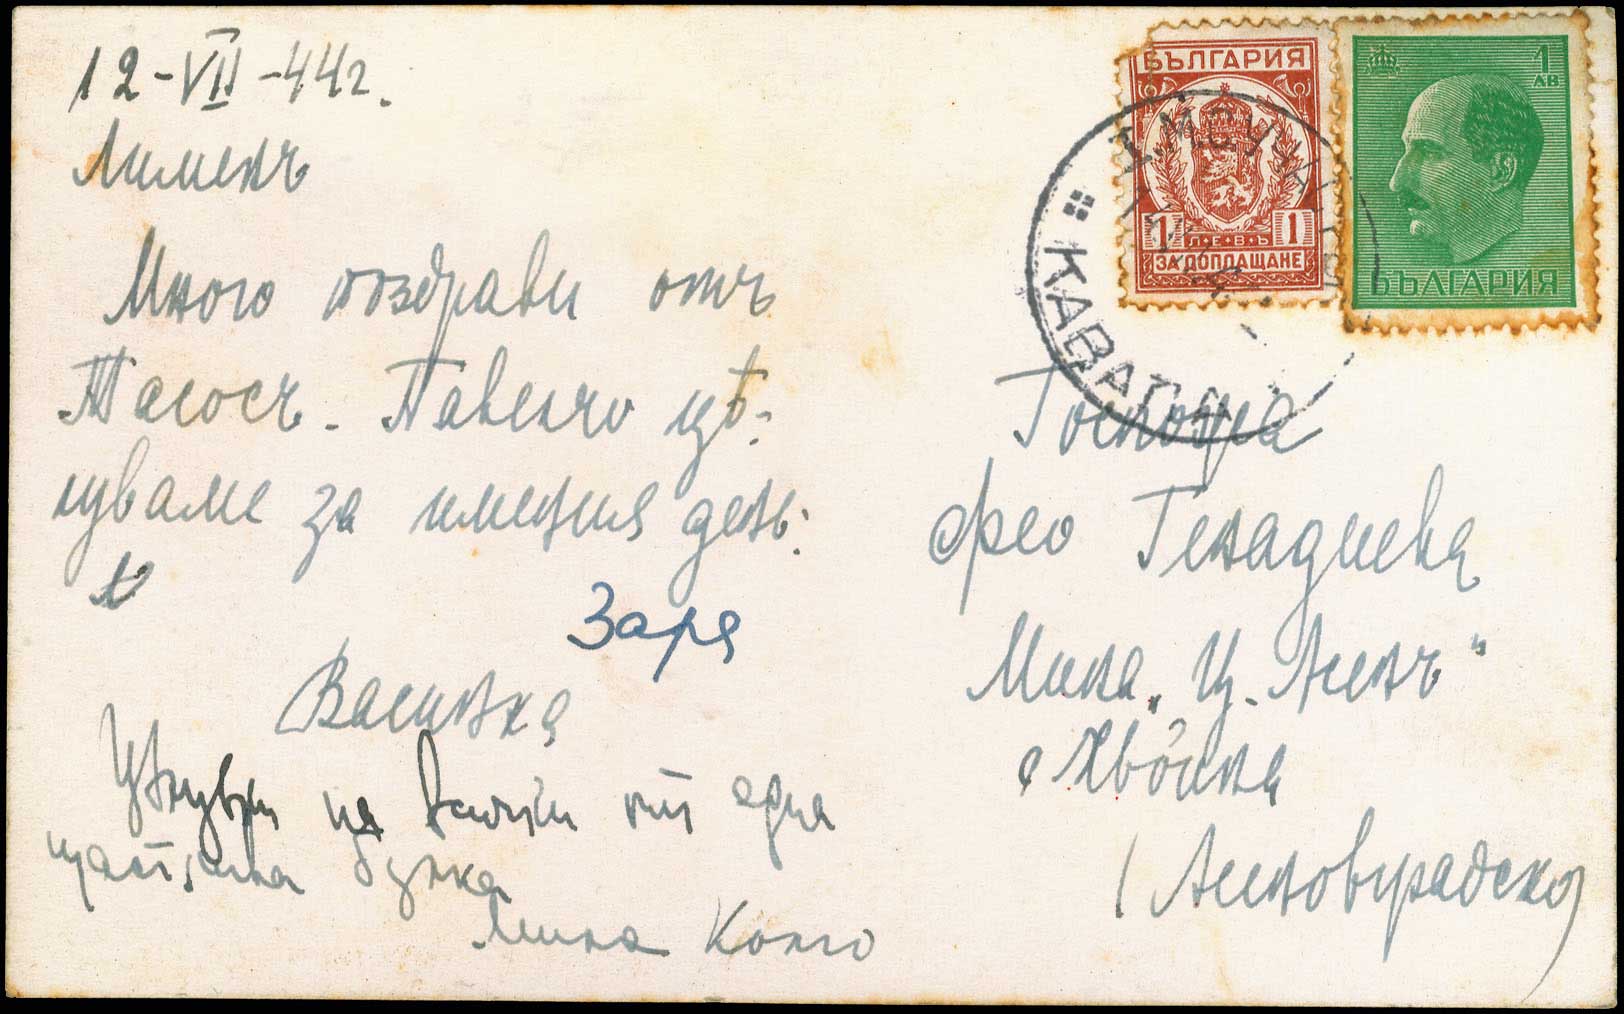 12-VII-44г.
Лименъ
Много поздрави отъ
Тасосъ. Павенчо цѣ-
луваме за имения день.
Заря
Василка
Цѣлувки на всички от една
щастлива булка
Мина Кочо
БЪЛГАРИЯ
1 Л·Е·В·Ъ 1
ЗА ДОПЛАЩАНЕ
1
ЛВ
БЪЛГАРИЯ
КАВАЛА
Госпожа
Фео Генадиева
Мина „Ц. Асенъ"
с. Хвойна
(Асеновградско)